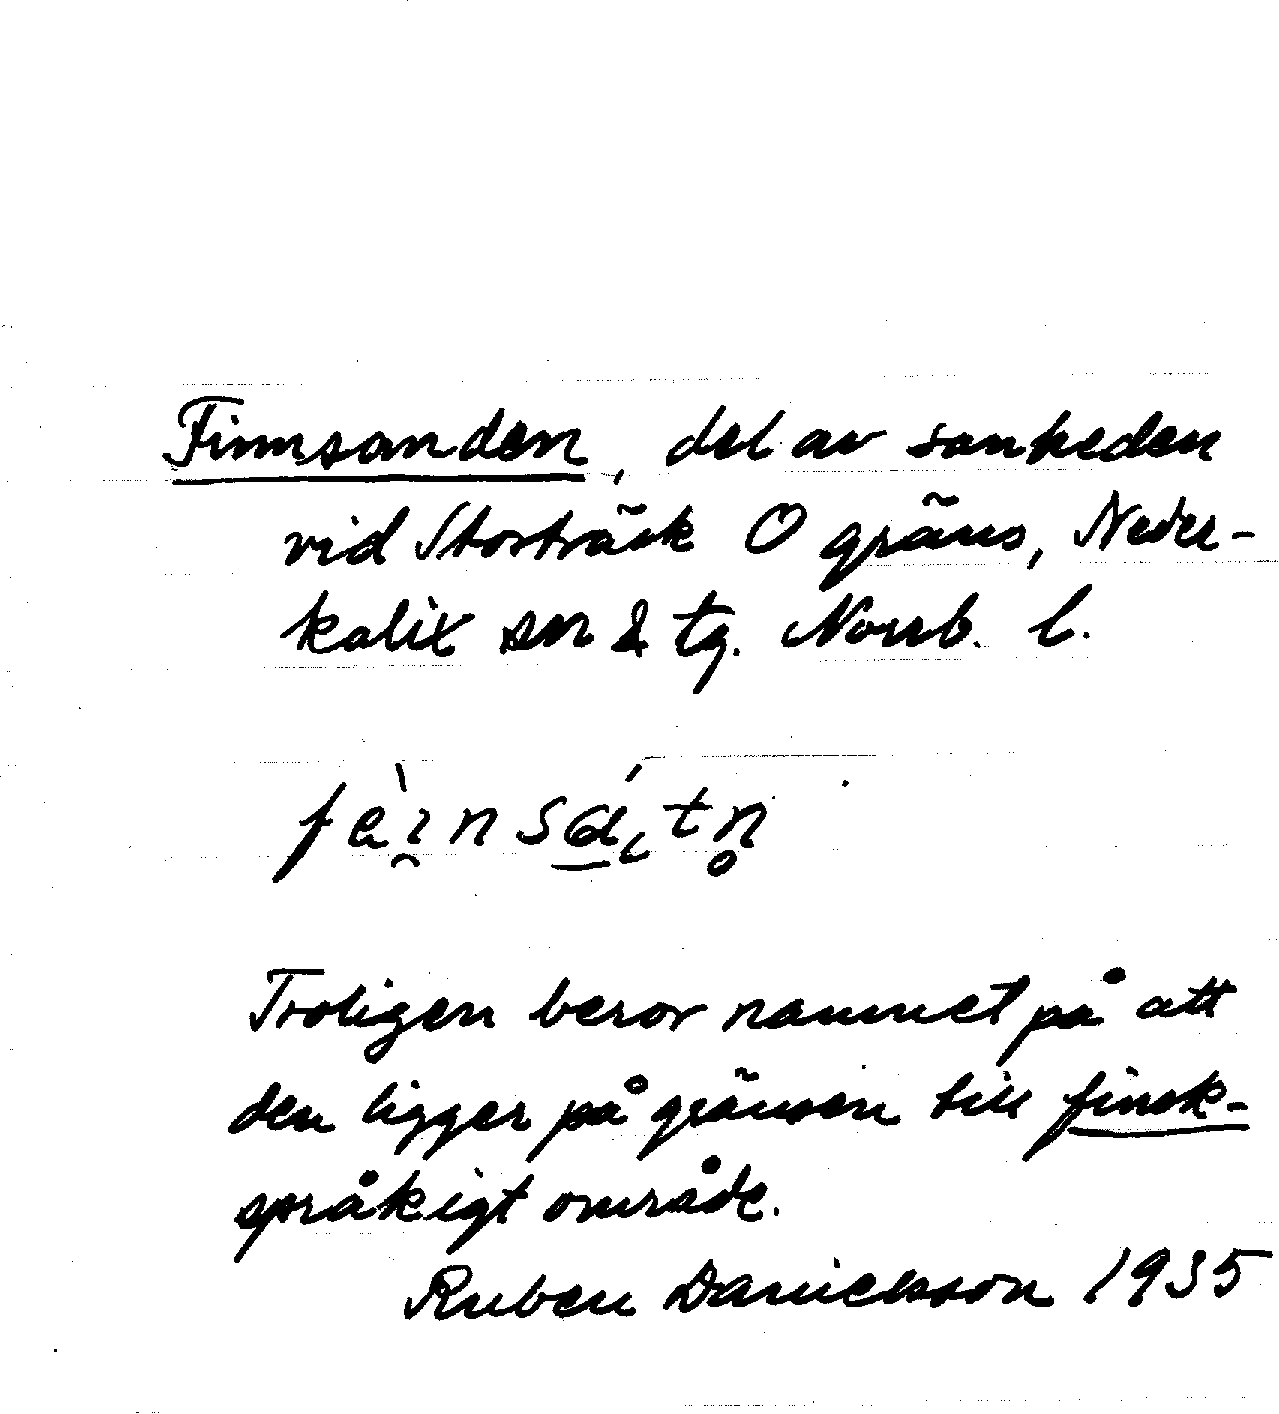 Finnsanden, del av sanheden
vid Storträsk O gräns, Neder-
kalix sn & tg. Norrb. l.
fèi̯nsá̱ı̨tn̥
Troligen beror namnet på att
den ligger på gränsen till finsk-
språkigt område.
Ruben Danielsson 1935